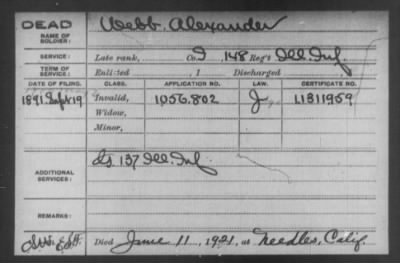 DEAD
NAME OF SOLDIER: Webb, Alexander
SERVICE: Late rank, Co. I, 148 Reg't Ill. Inf.
TERM OF SERVICE: Enlisted , 1 Discharged , 1
DATE OF FILING. CLASS. APPLICATION NO. LAW. CERTIFICATE NO.
1891 Sept 19 Invalid, 1056.802 J
Widow,
Minor,
ADDITIONAL SERVICES: 137 Ill. Inf.
REMARKS:
Died June 11, 1921, at Needles, Calif.